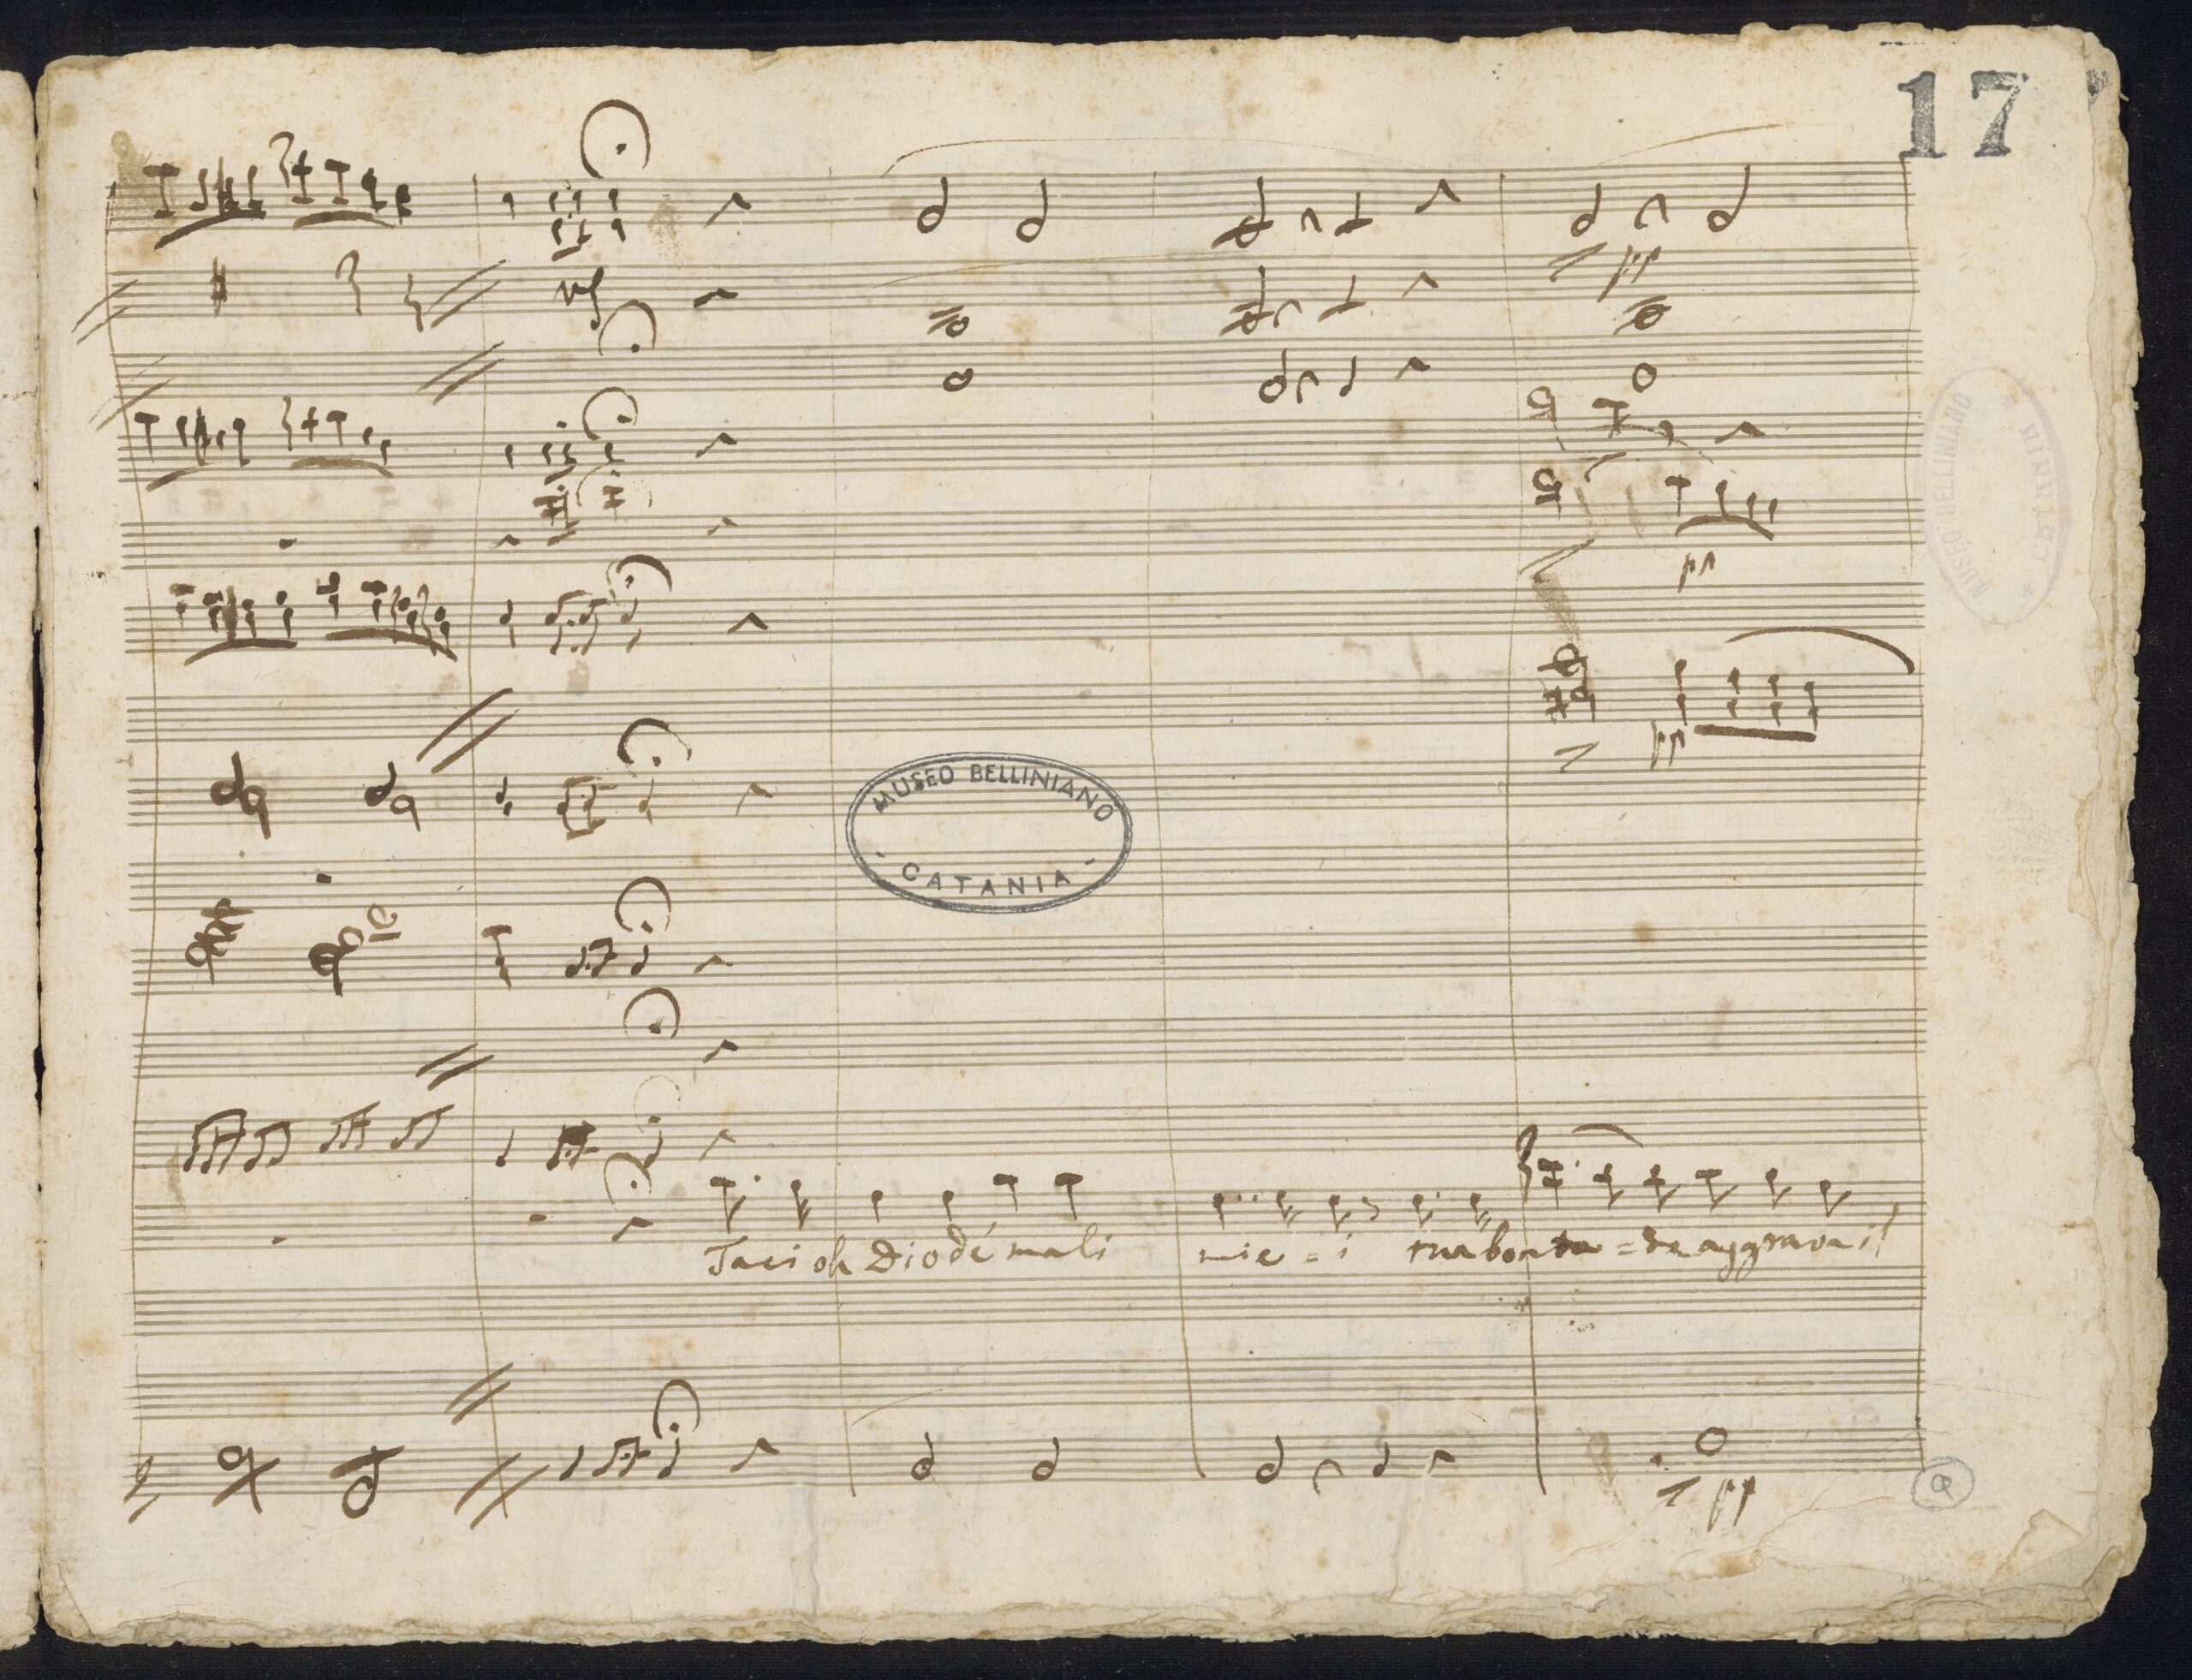 17
pp
MUSEO BELLINIANO
CATANIA
pp
pp
MUSEO BELLINIANO
- CATANIA -
Taci oh Dio de' mali mie = i tua bonta = de aggrava il
pp